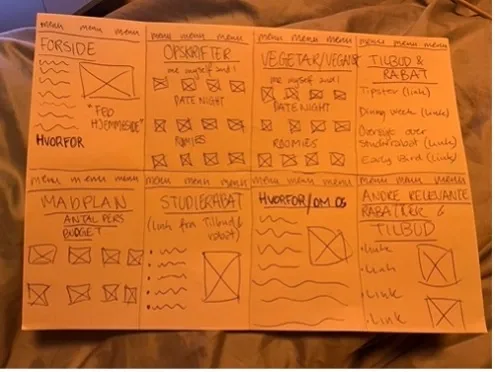 menu menu menu
FORSIDE
"FED
HJEMMESIDE"
HVORFOR
menu menu menu
OPSKRIFTER
me myself and I
DATE NIGHT
ROOMIES
menu menu menu
VEGETAR/VEGANSK
me myself and I
DATE NIGHT
ROOMIES
menu menu menu
TILBUD &
RABAT
Tipster (link)
Dining week (link)
Oversigt over
Studierabat (link)
Early Bird (link)
menu menu menu
MADPLAN
ANTAL PERS
BUDGET
menu menu menu
STUDIERABAT
(link fra Tilbud &
rabat)
menu menu menu
HVORFOR/OM OS
menu menu menu
ANDRE RELEVANTE
RABATTER &
TILBUD
• Link
• Link
• Link
• Link